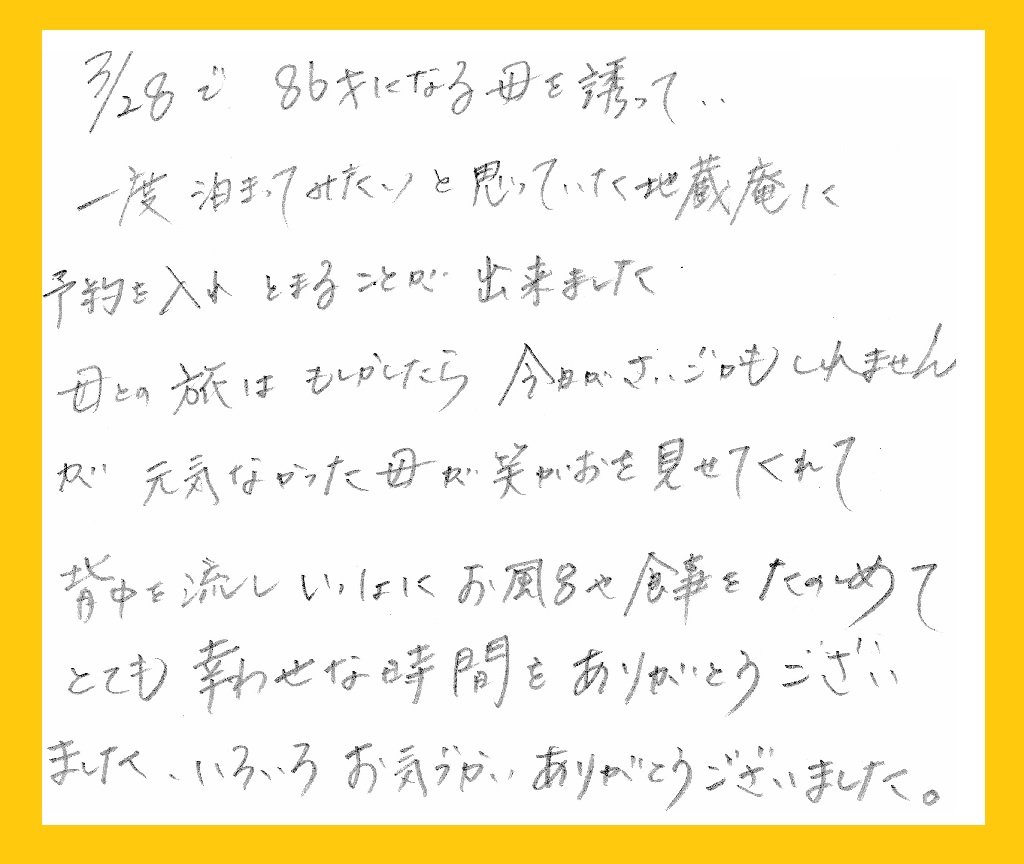 3/28で 86才になる母を誘って‥
一度 泊まってみたいと思っていた地蔵庵に
予約を入れ とまることが 出来ました
母との旅は もしかしたら 今日がさいごかもしれません
が 元気なかった母が笑がおを見せてくれて
背中を流し いっしょに お風呂や食事をたのしめて
とても幸わせな時間をありがとうござい
ました、いろいろ お気づかい ありがとうございました。